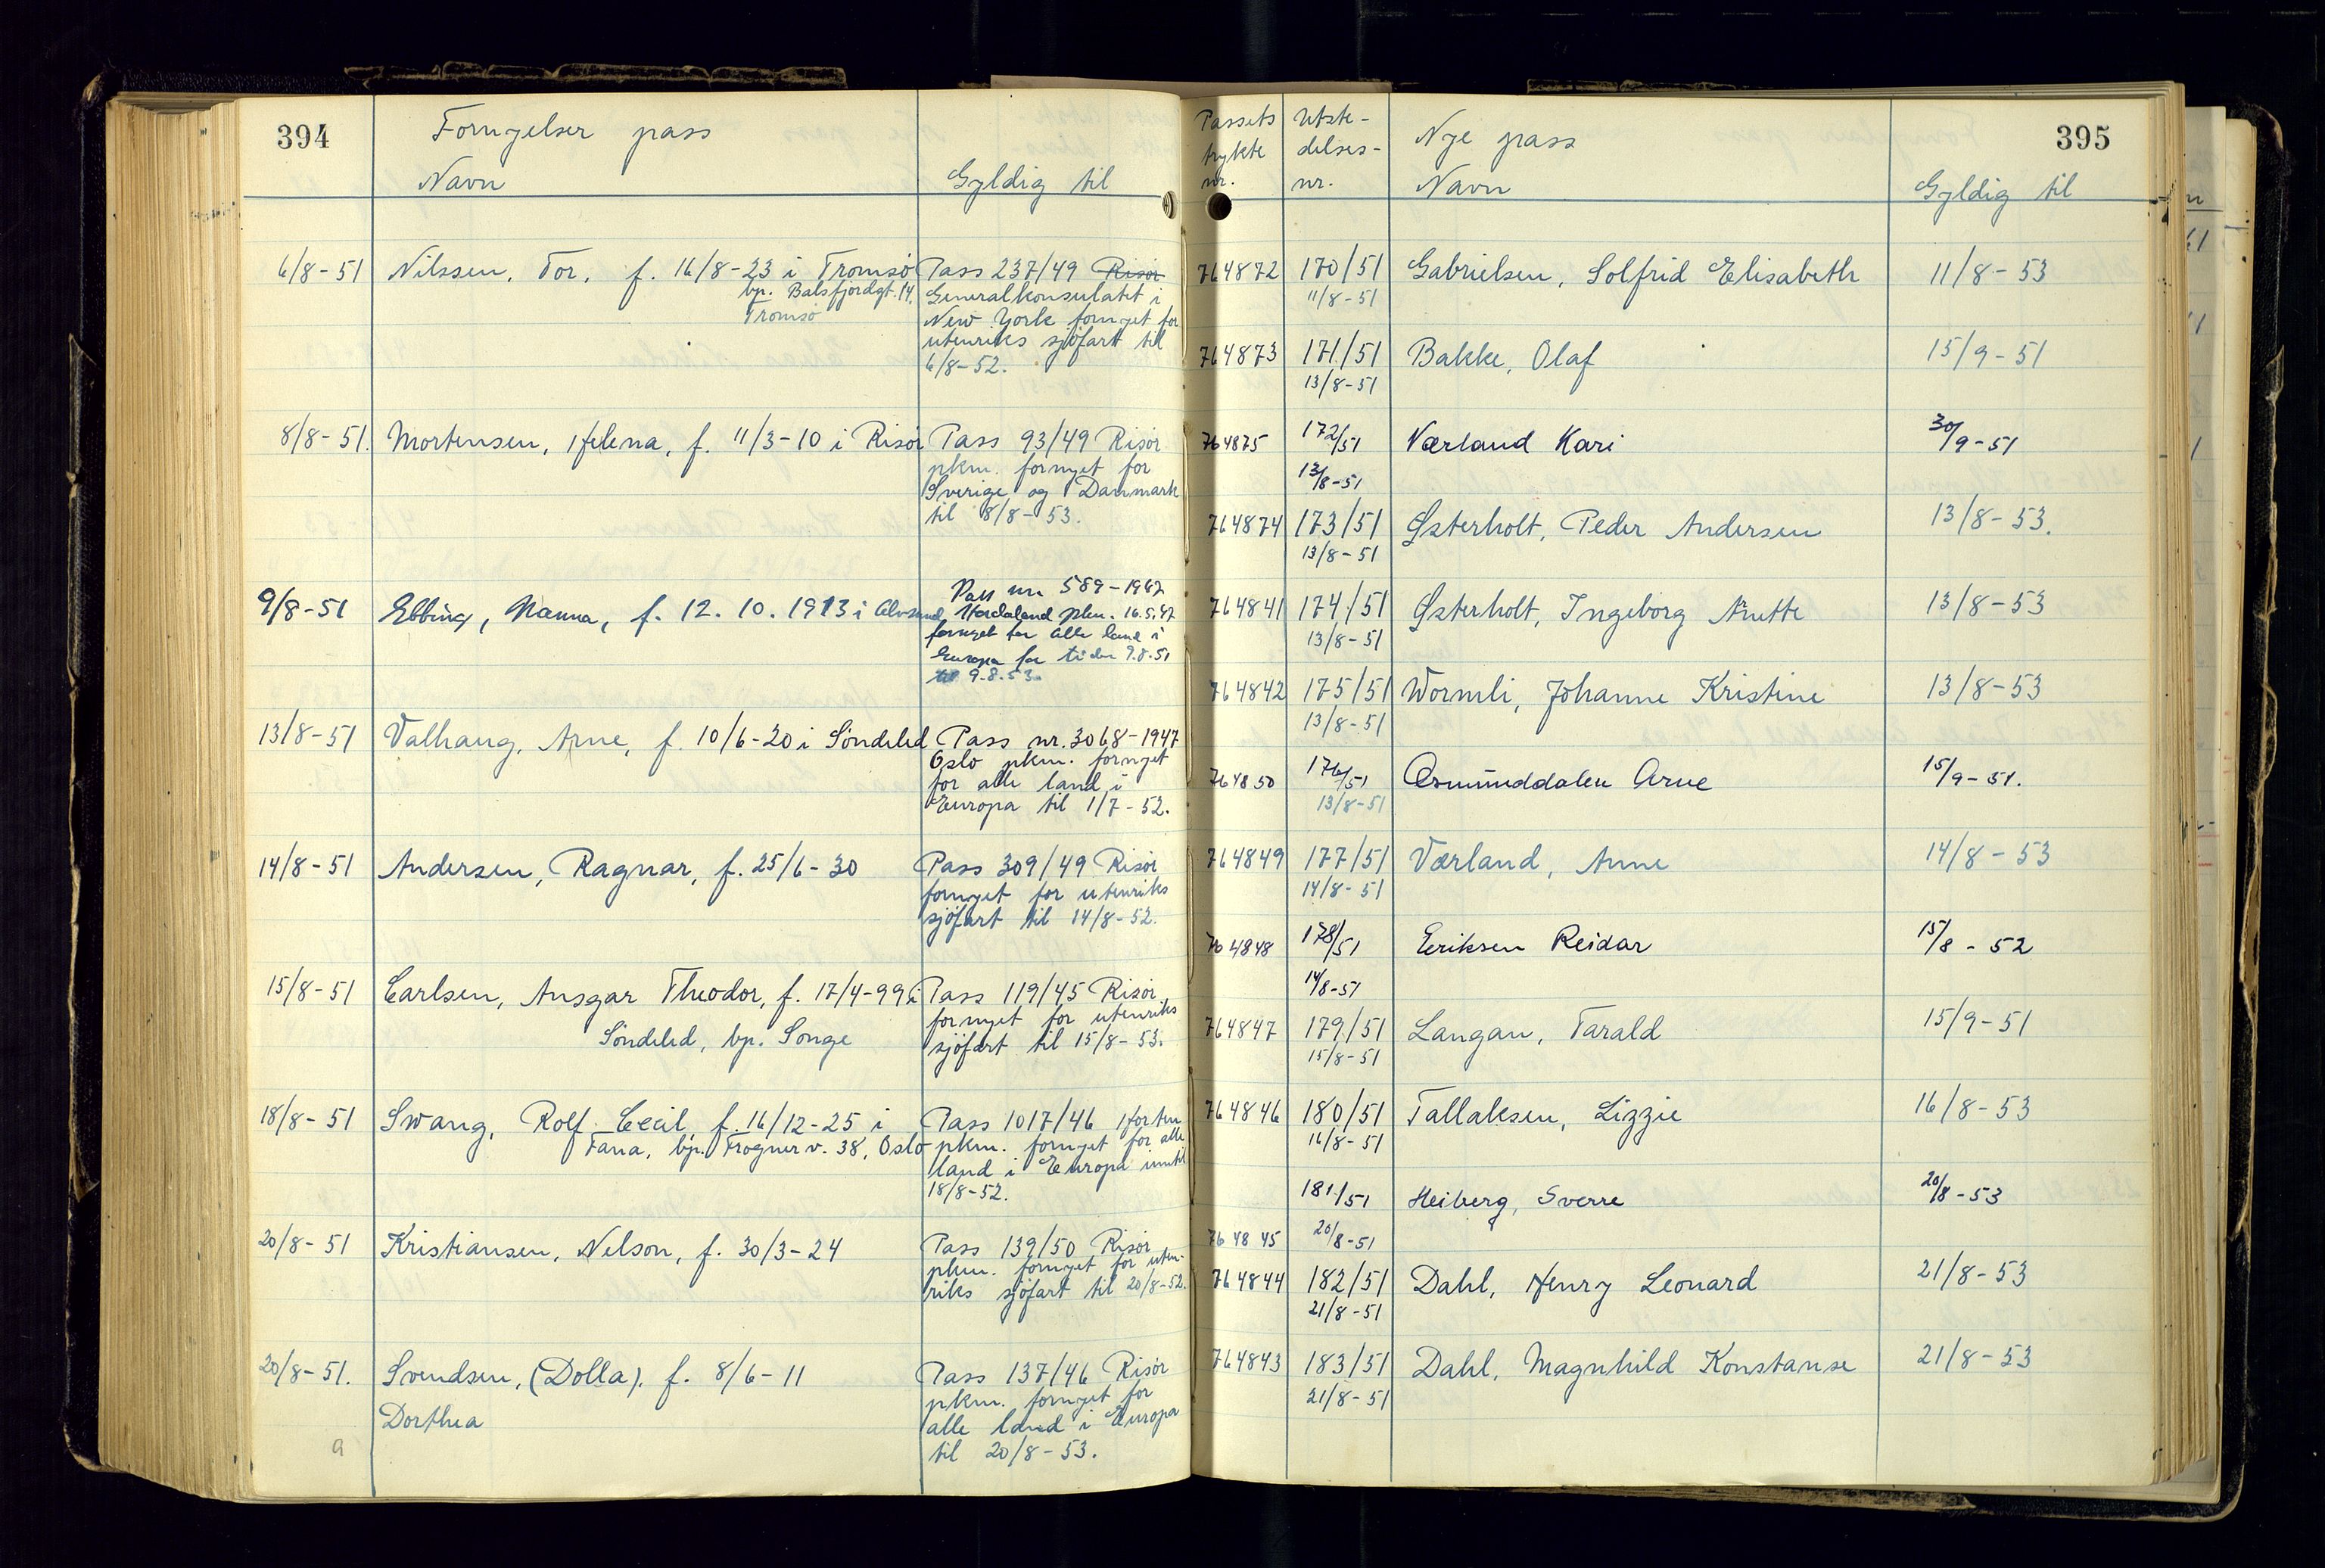 394
Fornyelser pass
Navn
Gyldig til
6/8-51 Nilssen, Tor, f. 16/8-23 i Tromsø
bp. Balsfjordgt. 14,
Tromsø
Pass 237/49 Risør
Generalkonsulatet i
New York fornyet for
utenriks sjøfart til
6/8-52.
8/8-51. Mortensen, Helena, f. 11/3-10 i Risør
Pass 93/49 Risør
pkm. fornyet for
Sverige og Danmark
til 8/8-53.
9/8-51 Ebbing, Nanna, f. 12.10.1913 i
Pass nr 589-1947
Hordaland pkm. 16.5.47
fornyet for alle land i
Europa for tiden 9.8.51
til 9.8.53.
13/8-51 Valhaug, Arne, f. 10/6-20 i Søndeled
Pass nr. 3068-1947
Oslo pkm. fornyet
for alle land i
Europa til 1/7-52.
14/8-51 Andersen, Ragnar, f. 25/6-30
Pass 309/49 Risør
fornyet for utenriks
sjøfart til 14/8-52.
15/8-51 Carlsen, Ansgar Theodor, f. 17/4-99 i
Søndeled, bp. Songe
Pass 119/45 Risør
fornyet for utenriks
sjøfart til 15/8-53.
18/8-51 Swang, Rolf Cecil f. 16/12-25 i
Fana, bp. Frognerv. 38, Oslo
Pass 1017/46 Horten
pkm. fornyet for alle
land i Europa inntil
18/8-52.
20/8-51 Kristiansen, Nelson, f. 30/3-24
Pass 139/50 Risør
pkm. fornyet for uten-
riks sjøfart til 20/8-52.
20/8-51. Svendsen, (Dolla). f. 8/6-11
Dorthea
Pass 137/46 Risør
pkm. fornyet for
alle land i Europa
til 20/8-53.
a
395
Passets
trykte
nr.
Utste-
delses-
nr.
Nye pass
Navn
Gyldig til
764872 170/51 Gabrielsen, Solfrid Elisabeth 11/8-53
11/8-51
764873 171/51 Bakke, Olaf 15/9-51
13/8-51
764875 172/51 Værland Kari 30/9-51
13/8-51
764874 173/51 Østerholt, Peder Andersen 13/8-53.
13/8-51
764841 174/51 Østerholt, Ingeborg Anette 13/8-53
13/8-51
764842 175/51 Wormli, Johanne Kristine 13/8-53
13/8-51
764850 176/51 Åsmunddalen Arne 15/9-51.
13/8-51
764849 177/51 Værland, Anne 14/8-53
14/8-51
764848 178/51 Eeriksen Reidar 15/8-52
14/8-51
764847 179/51 Langan, Tarald 15/9-51
15/8-51
764846 180/51 Tallaksen, Lizzie 16/8-53
16/8-51
181/51 Heiberg, Sverre 20/8-53
764845 20/8-51
764844 182/51 Dahl, Henry Leonard 21/8-53
21/8-51
764843 183/51 Dahl, Magnhild Konstanse 21/8-53
21/8-51